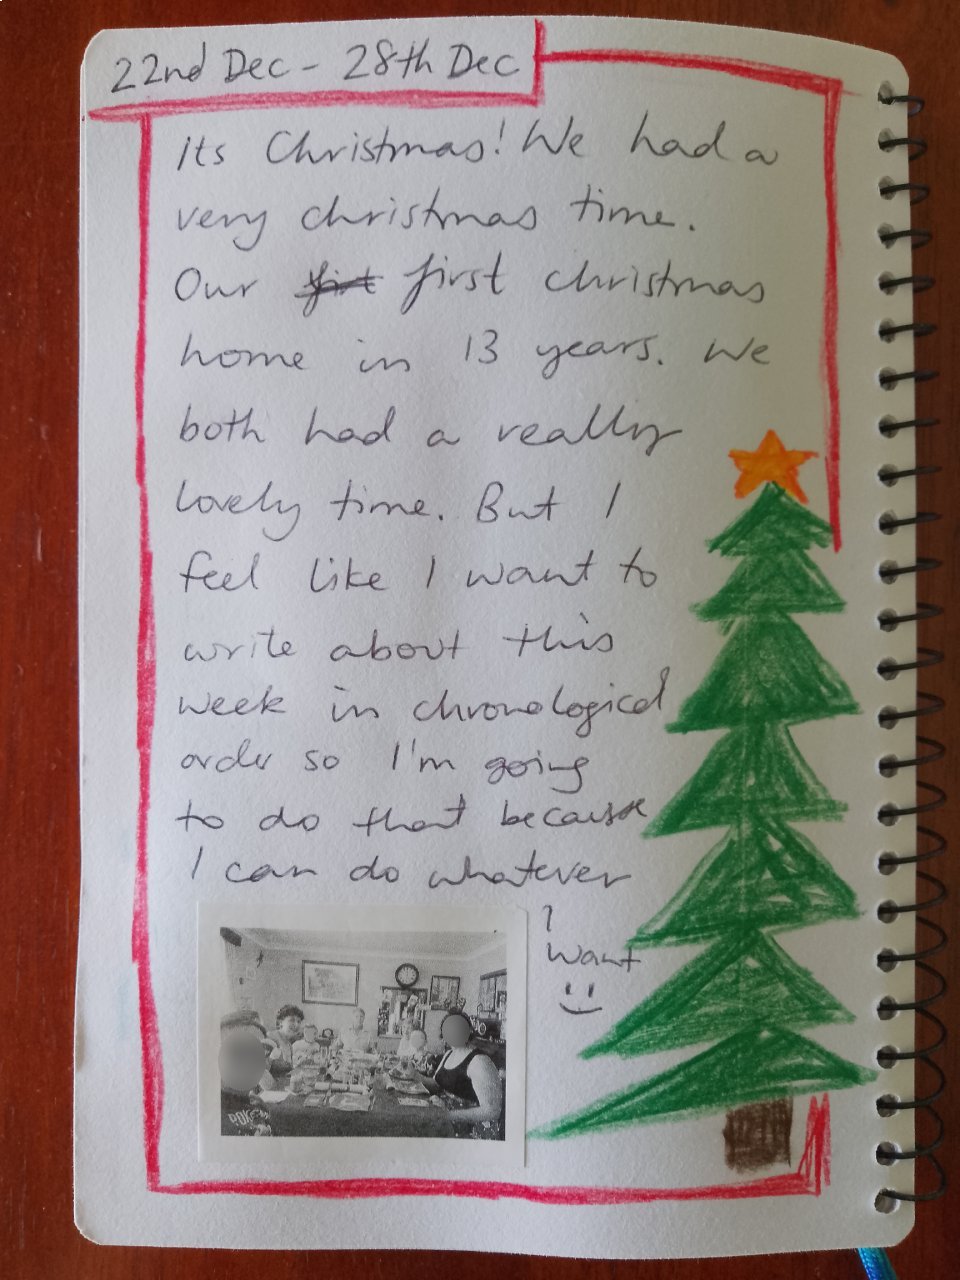 22nd Dec - 28th Dec
Its Christmas! We had a
very christmas time.
Our first christmas
home in 13 years. We
both had a really
lovely time. But I
feel like I want to
write about this
week in chronological
order so I'm going
to do that because
I can do whatever
I
want